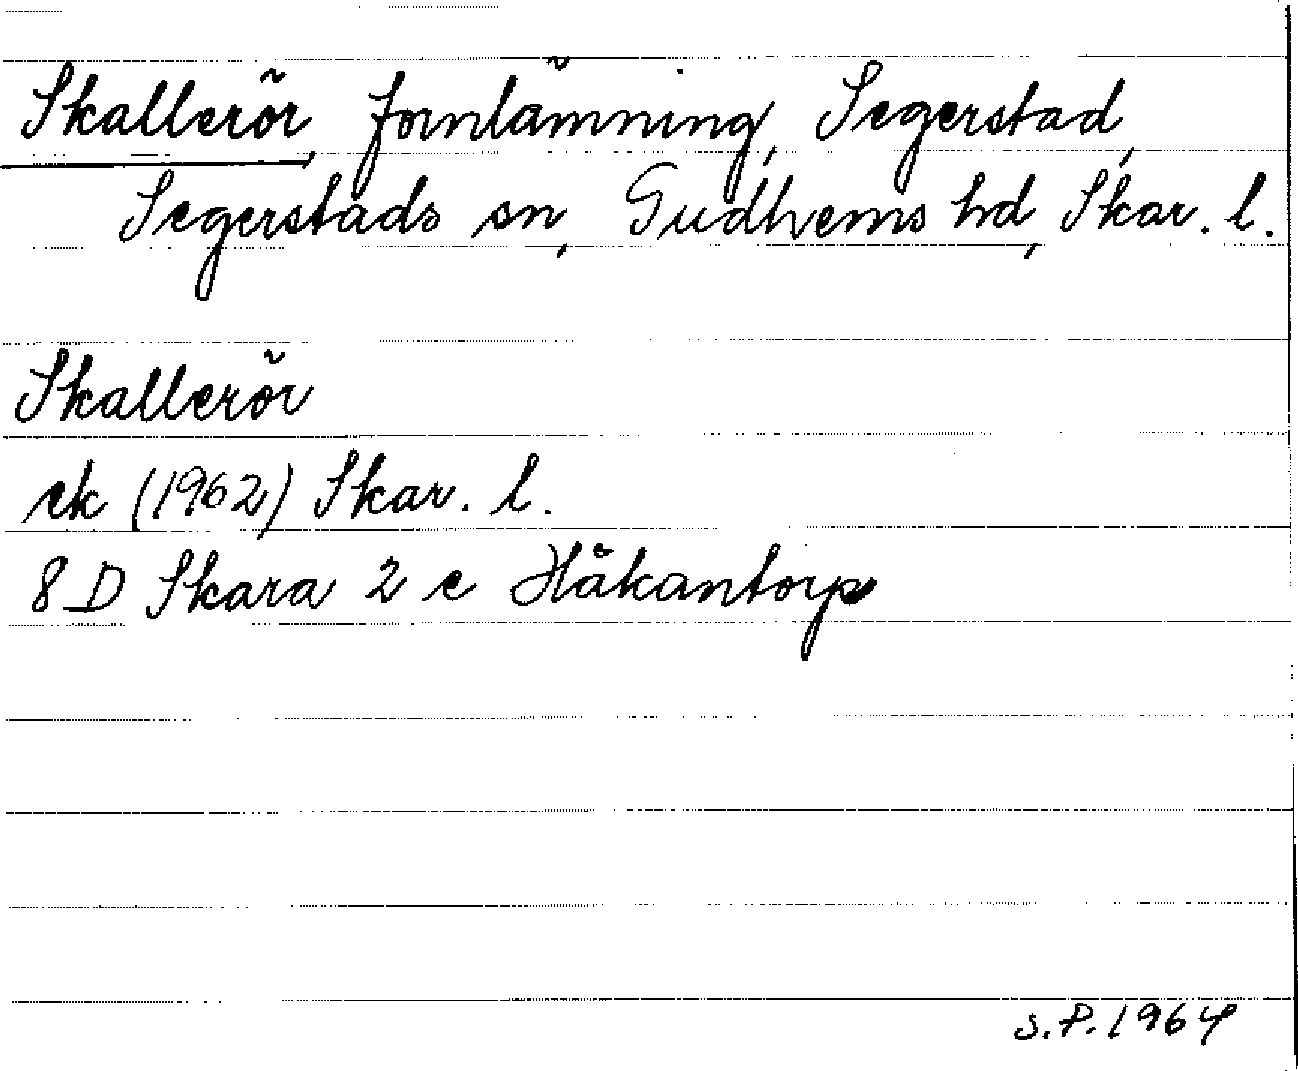 Skallerör, fornlämning, Segerstad,
Segerstads sn, Gudhems hd, Skar. l.
Skallerör
ek (1962) Skar. l.
8 D Skara 2 e Håkantorp
S.P. 1964